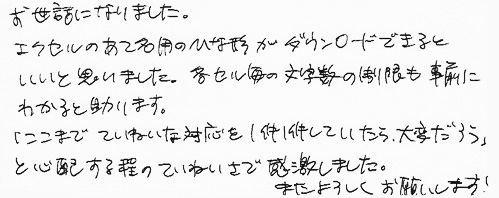 お世話になりました。
エクセルのあて名用のひな形がダウンロードできると
いいと思いました。各セル毎の文字数の制限も事前に
わかると助かります。
「ここまでていねいな対応を1件1件していたら、大変だろう」
と心配する程のていねいさで感激しました。
またよろしくお願いします!